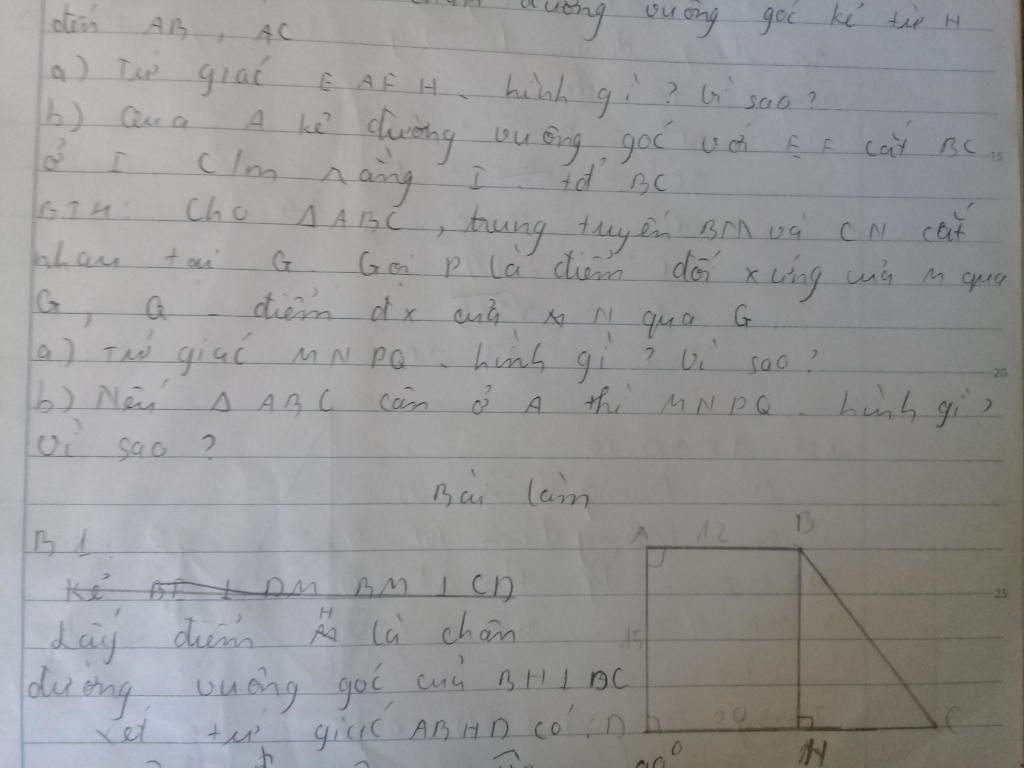 đường vuông góc kẻ từ H
đến AB, AC
a) Tứ giác EAFH. hình gì? Vì sao?
b) Qua A kẻ đường vuông góc với EF cắt BC
ở I C/m rằng I tđ BC
BT4: Cho ΔABC, trung tuyến BM và CN cắt
nhau tại G. Gọi P là điểm đối xứng của M qua
G, Q điểm đx của N qua G
a) Tứ giác MNPQ. hình gì? Vì sao?
b) Nếu ΔABC cân ở A thì MNPQ. hình gì?
Vì sao?
Bài làm
B1
Kẻ BE ⊥ DM BM ⊥ CD
Lấy điểm H là chân
đường vuông góc của BH ⊥ DC
Xét tứ giác ABHD có:
A 12 B
15
D 20 H C
90°